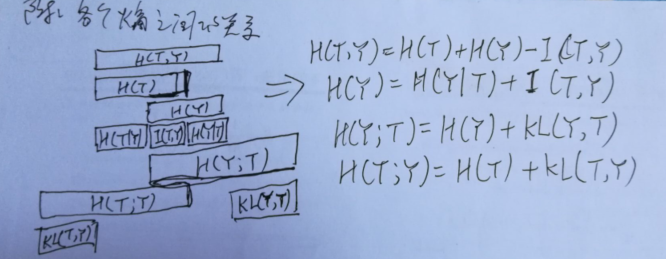 附录：各个火商之间的关系
H(T,Y)
H(T)
H(Y)
H(T|Y) I(T,Y) H(Y|T)
H(Y;T)
H(T;T)
KL(Y,T)
KL(T,Y)
⇒ H(T,Y)=H(T)+H(Y)-I(T,Y)
H(Y)=H(Y|T)+I(T,Y)
H(Y;T)=H(Y)+KL(Y,T)
H(T;Y)=H(T)+KL(T,Y)